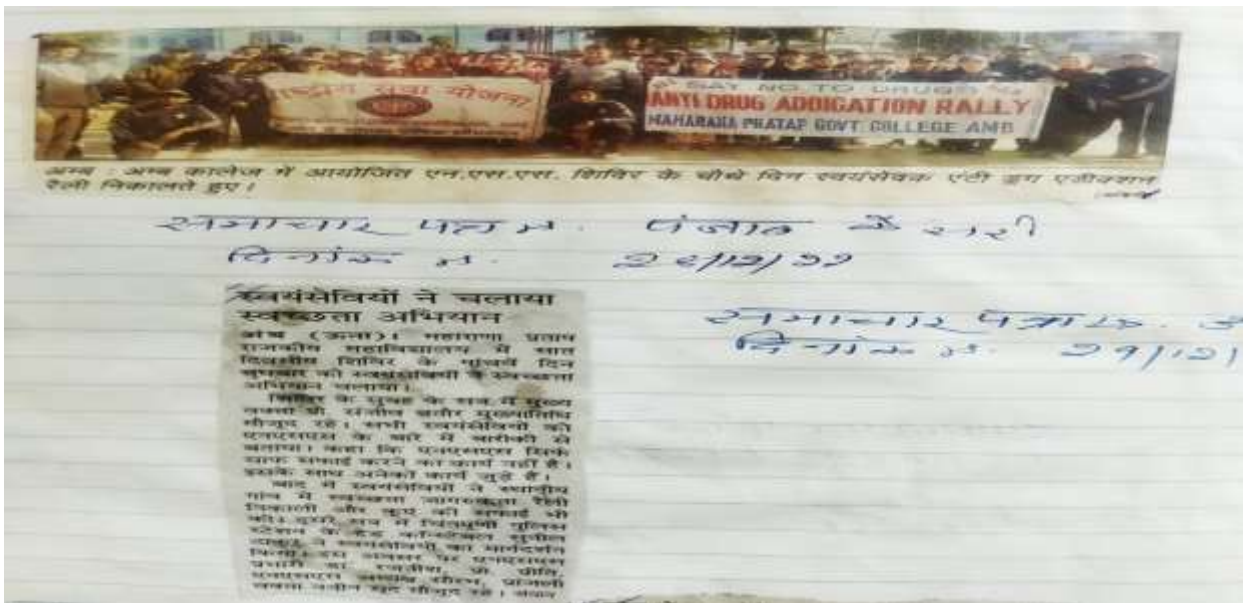 राष्ट्रीय सेवा योजना
SAY NO TO DRUGS
ANTI DRUG ADDIGATION RALLY
MAHARANA PRATAP GOVT. COLLEGE AMB
अम्ब : अम्ब कालेज में आयोजित एन.एस.एस. शिविर के चौथे दिन स्वयंसेवक एंटी ड्रग एडीक्शन
रैली निकालते हुए।
समाचार पत्र पंजाब केसरी
दिनांक
स्वयंसेवियों ने चलाया
स्वच्छता अभियान
अंब (ऊना)। महाराणा प्रताप
राजकीय महाविद्यालय में सात
दिवसीय शिविर के पांचवें दिन
बुधवार को स्वयंसेवियों ने स्वच्छता
अभियान चलाया।
शिविर के सुबह के सत्र में मुख्य
वक्ता प्रो. संजीव बतौर मुख्यातिथि
मौजूद रहे। सभी स्वयंसेवियों को
एनएसएस के बारे में बारीकी से
बताया। कहा कि एनएसएस सिर्फ
साफ सफाई करने का कार्य नहीं है।
इसके साथ अनेकों कार्य जुड़े हैं।
बाद में स्वयंसेवियों ने स्थानीय
गांव में स्वच्छता जागरूकता रैली
निकाली और कुएं की सफाई भी
की। दूसरे सत्र में चिंतपूर्णी पुलिस
स्टेशन के हेड कांस्टेबल सुनील
ठाकुर ने स्वयंसेवियों का मार्गदर्शन
किया। इस अवसर पर एनएसएस
प्रभारी डा. रजनीश, प्रो. प्रीति,
एनएसएस अध्यक्ष सौरभ, प्रांजली
नवीन सूद मौजूद रहे।
समाचार पत्र
दिनांक